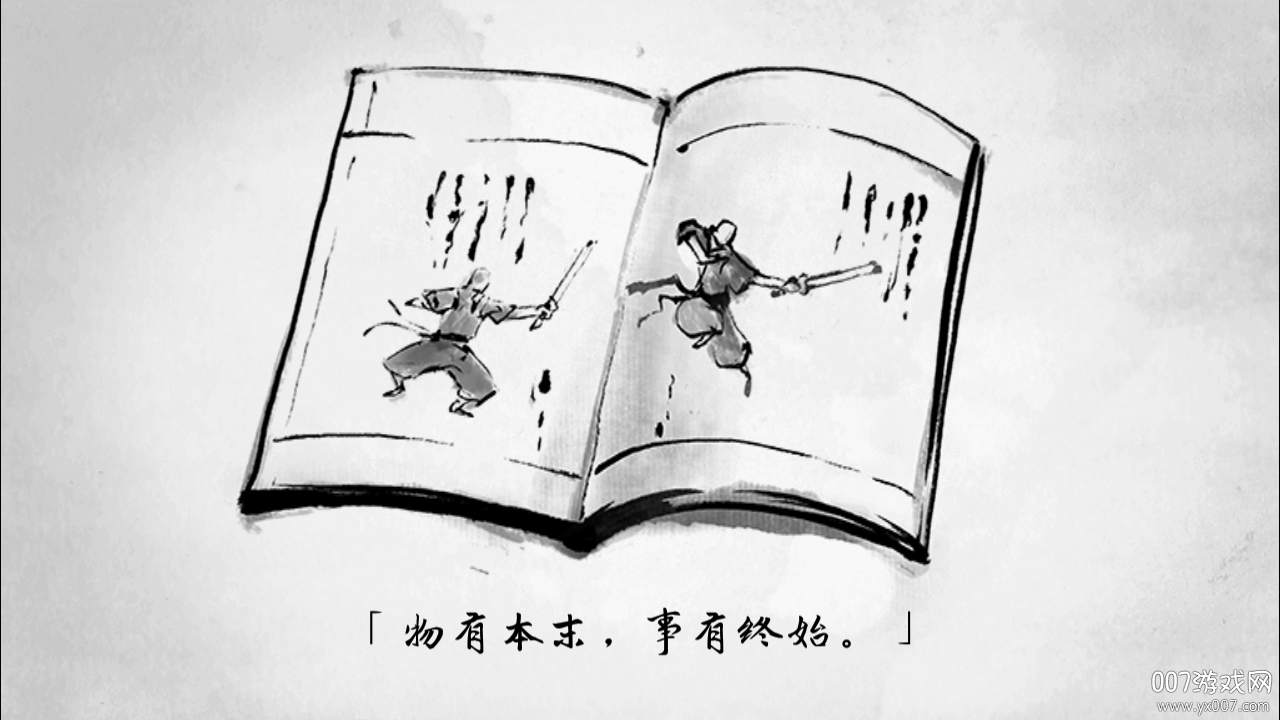 「物有本末，事有终始。」
007游戏网
www.yx007.com